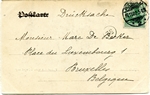 Postkarte Drucksache
Monsieur Marc De Backer
Place du Luxembourg 1
Bruxelles
Belgique